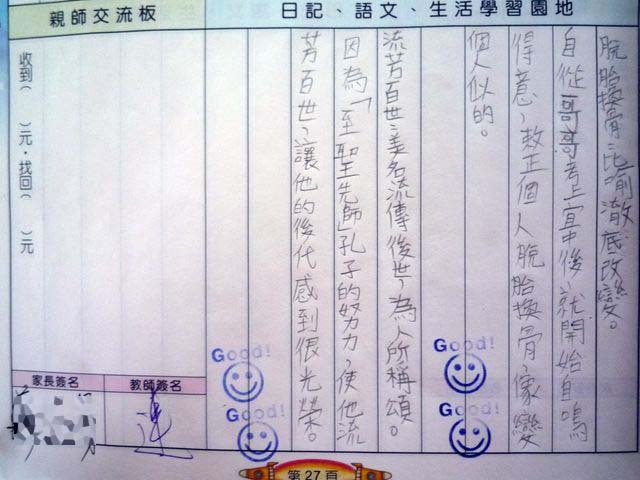 日記、語文、生活學習園地
脫胎換骨:比喻澈底改變。
自從哥哥考上宜中後,就開始自鳴
得意,救正個人脫胎換骨,像變
個人似的。
流芳百世:美名流傳後世,為人所稱頌。
因為「至聖先師」孔子的努力,使他流
芳百世,讓他的後代感到很光榮。
Good!
Good!
Good!
Good!
親師交流板
收到( )元.找回( )元
家長簽名
教師簽名
第27頁